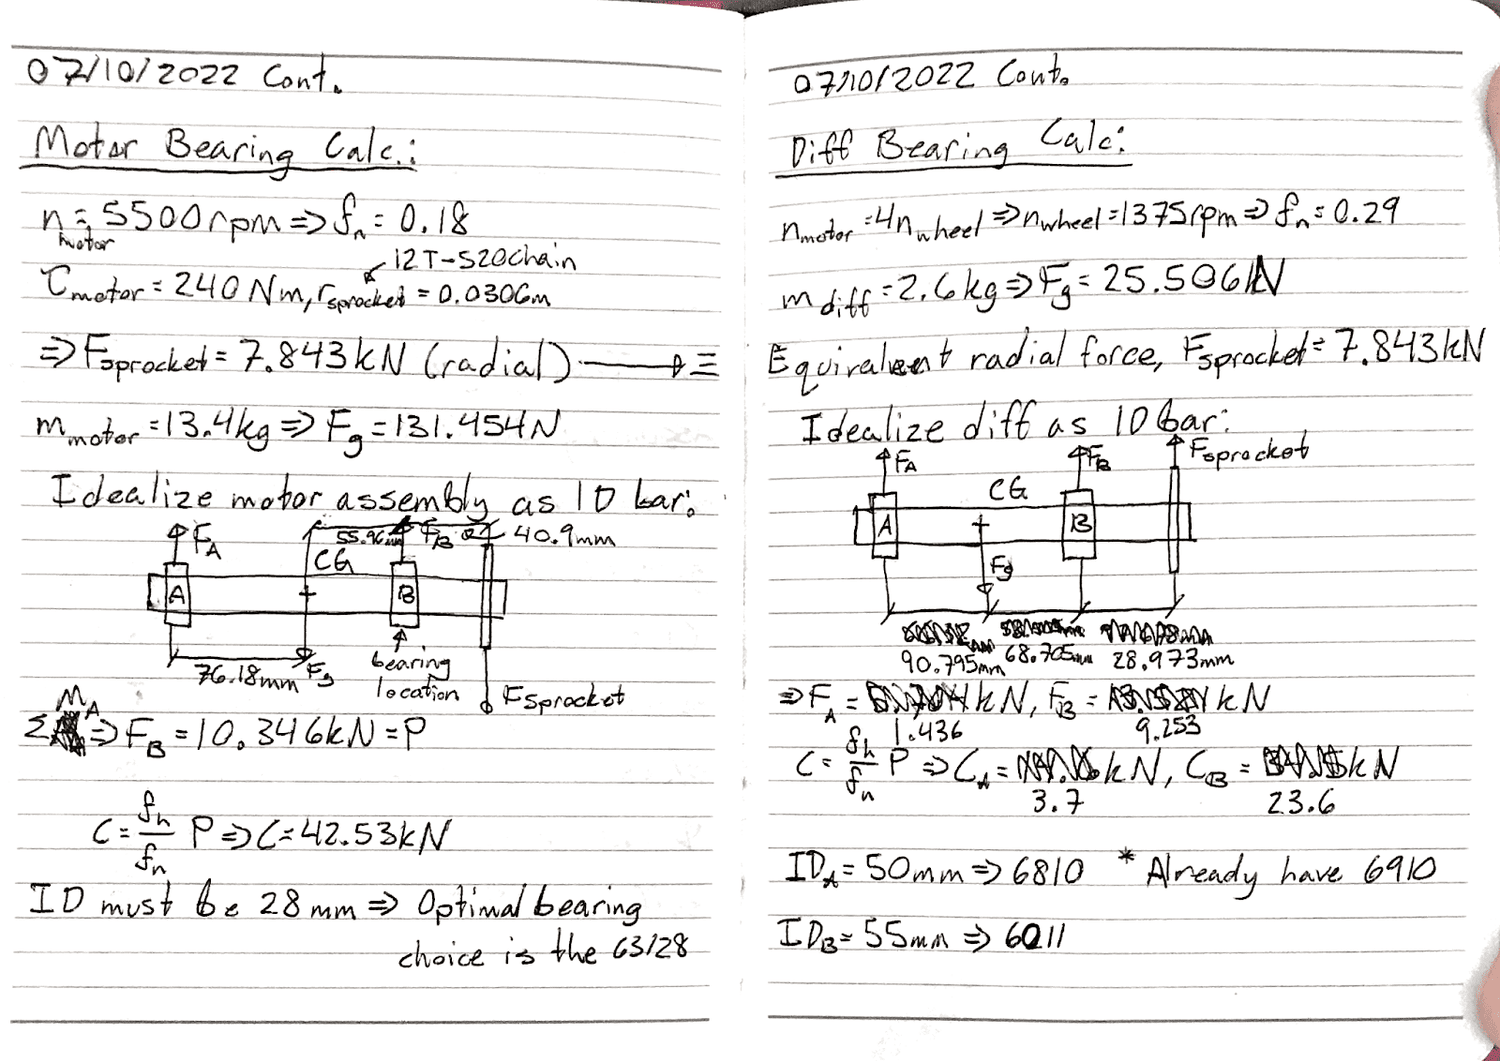 07/10/2022 Cont.
Motor Bearing Calc.:
n_motor = 5500rpm ⇒ f_n = 0.18
12T-520chain
τ_motor = 240 Nm, r_sprocket = 0.0306m
⇒ F_sprocket = 7.843kN (radial) → Ξ
m_motor = 13.4kg ⇒ F_g = 131.454N
Idealize motor assembly as 1D bar:
F_A 55.96mm F_B 40.9mm
CG
A B
76.18mm F_g bearing location F_sprocket
ΣM_A ⇒ F_B = 10.346kN = P
C = f_h/f_n P ⇒ C = 42.53kN
ID must be 28mm ⇒ Optimal bearing
choice is the 63/28
07/10/2022 Cont.
Diff Bearing Calc:
n_motor = 4n_wheel ⇒ n_wheel = 1375rpm ⇒ f_n = 0.29
m_diff = 2.6kg ⇒ F_g = 25.506N
Equivalent radial force, F_sprocket = 7.843kN
Idealize diff as 1D bar:
F_A F_B F_sprocket
CG
A B
F_g
90.795mm 68.705mm 28.973mm
⇒ F_A = 1.436 kN, F_B = 9.253 kN
C = f_h/f_n P ⇒ C_A = 3.7 kN, C_B = 23.6 kN
ID_A = 50mm ⇒ 6810 * Already have 6910
ID_B = 55mm ⇒ 6011